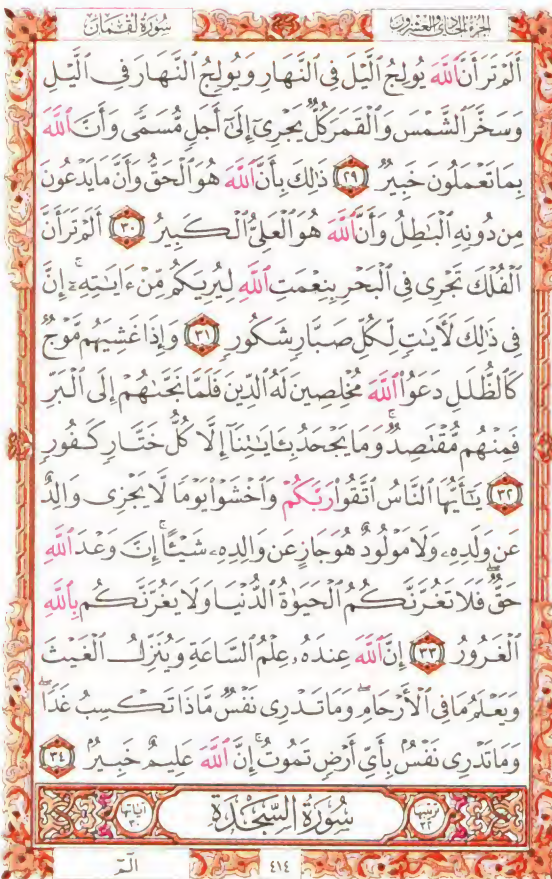 الجزء الحادي والعشرون
سُورَةُ لُقْمَان
أَلَمْ تَرَ أَنَّ ٱللَّهَ يُولِجُ ٱلَّيْلَ فِى ٱلنَّهَارِ وَيُولِجُ ٱلنَّهَارَ فِى ٱلَّيْلِ
وَسَخَّرَ ٱلشَّمْسَ وَٱلْقَمَرَ كُلٌّ يَجْرِىٓ إِلَىٰٓ أَجَلٍ مُّسَمًّى وَأَنَّ ٱللَّهَ
بِمَا تَعْمَلُونَ خَبِيرٌ ٢٩ ذَٰلِكَ بِأَنَّ ٱللَّهَ هُوَ ٱلْحَقُّ وَأَنَّ مَا يَدْعُونَ
مِن دُونِهِ ٱلْبَٰطِلُ وَأَنَّ ٱللَّهَ هُوَ ٱلْعَلِىُّ ٱلْكَبِيرُ ٣٠ أَلَمْ تَرَ أَنَّ
ٱلْفُلْكَ تَجْرِى فِى ٱلْبَحْرِ بِنِعْمَتِ ٱللَّهِ لِيُرِيَكُم مِّنْ ءَايَٰتِهِۦٓ ۚ إِنَّ
فِى ذَٰلِكَ لَءَايَٰتٍ لِّكُلِّ صَبَّارٍ شَكُورٍ ٣١ وَإِذَا غَشِيَهُم مَّوْجٌ
كَٱلظُّلَلِ دَعَوُا۟ ٱللَّهَ مُخْلِصِينَ لَهُ ٱلدِّينَ فَلَمَّا نَجَّىٰهُمْ إِلَى ٱلْبَرِّ
فَمِنْهُم مُّقْتَصِدٌ ۚ وَمَا يَجْحَدُ بِـَٔايَٰتِنَآ إِلَّا كُلُّ خَتَّارٍ كَفُورٍ
٣٢ يَٰٓأَيُّهَا ٱلنَّاسُ ٱتَّقُوا۟ رَبَّكُمْ وَٱخْشَوْا۟ يَوْمًا لَّا يَجْزِى وَالِدٌ
عَن وَلَدِهِۦ وَلَا مَوْلُودٌ هُوَ جَازٍ عَن وَالِدِهِۦ شَيْـًٔا ۚ إِنَّ وَعْدَ ٱللَّهِ
حَقٌّ ۖ فَلَا تَغُرَّنَّكُمُ ٱلْحَيَوٰةُ ٱلدُّنْيَا وَلَا يَغُرَّنَّكُم بِٱللَّهِ
ٱلْغَرُورُ ٣٣ إِنَّ ٱللَّهَ عِندَهُۥ عِلْمُ ٱلسَّاعَةِ وَيُنَزِّلُ ٱلْغَيْثَ
وَيَعْلَمُ مَا فِى ٱلْأَرْحَامِ ۖ وَمَا تَدْرِى نَفْسٌ مَّاذَا تَكْسِبُ غَدًا ۖ
وَمَا تَدْرِى نَفْسٌۢ بِأَىِّ أَرْضٍ تَمُوتُ ۚ إِنَّ ٱللَّهَ عَلِيمٌ خَبِيرٌۢ ٣٤
ترتيبها ٣٢ سُورَةُ السَّجْدَةِ آياتها ٣٠
٤١٤
الٓمٓ